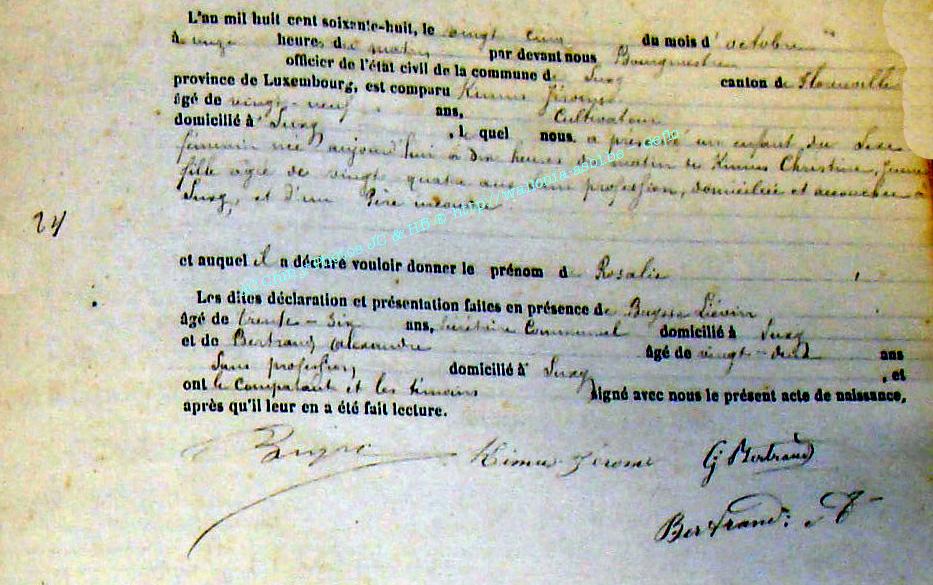 L'an mil huit cent soixante-huit, le vingt cinq du mois d' octobre
à onze heures du matin par devant nous Bourgmestre
officier de l'état civil de la commune de Suxy canton de Florenville
province de Luxembourg, est comparu Kimus Jérome
âgé de vingt-neuf ans, Cultivateur
domicilié à Suxy , lequel nous a présenté un enfant du Sexe
féminin née aujourd'hui à dix heures du matin de Kimus Christine, jeune
fille agée de vingt quatre ans, sans profession, domiciliée et accouchée à
Suxy, et d'un Père inconnu.
24
et auquel il a déclaré vouloir donner le prénom de Rosalie
Les dites déclaration et présentation faites en présence de Buysse Liévin
âgé de trente-six ans, Secrétaire Communal domicilié à Suxy
et de Bertrand Alexandre âgé de vingt-deux ans
Sans profession, domicilié à Suxy , et
ont le Comparant et les témoins signé avec nous le présent acte de naissance,
après qu'il leur en a été fait lecture.
Kimus Jérome G Bertrand
Bertrand: A